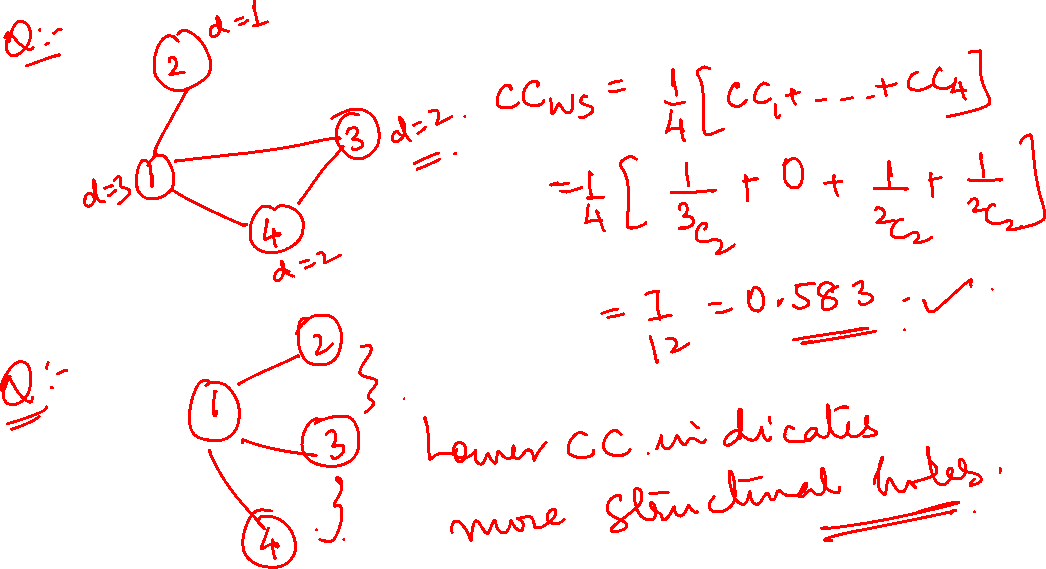 Q:-
d=1
2
3 d=2.
d=3 1
4
d=2
CCws = 1/4 [CC₁ + - - - + CC₄]
= 1/4 [ 1/3c₂ + 0 + 1/2c₂ + 1/2c₂ ]
= 7/12 = 0.583 . ✓ .
Q:-
2
1
3
4
Lower CC. indicates
more structural holes.